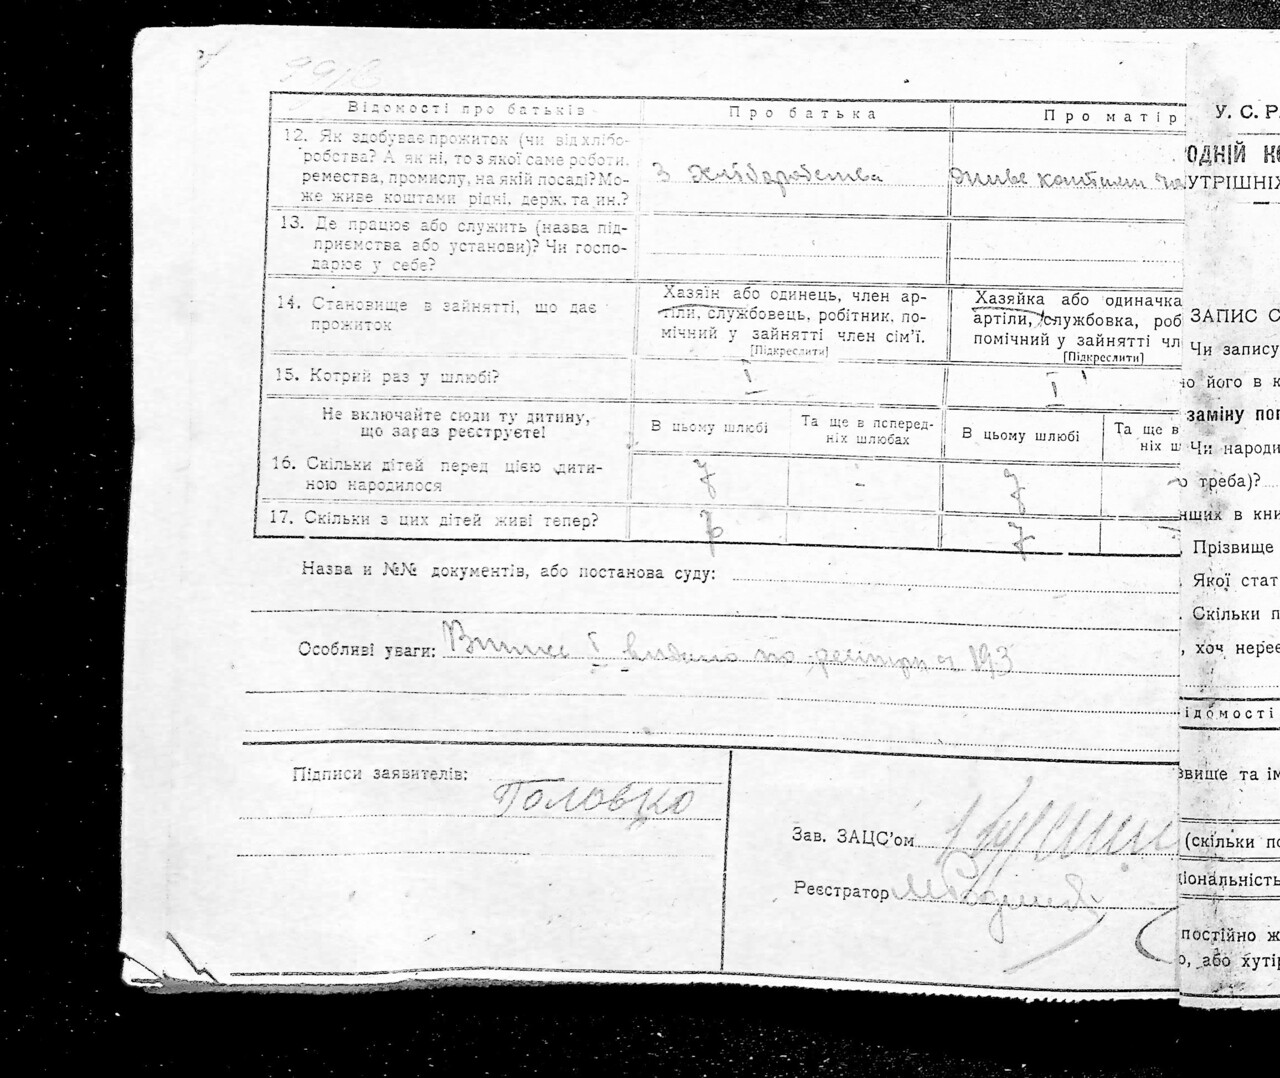 Відомості про батьків
Про батька
Про матір
12. Як здобуває прожиток (чи від хлібо-
робства? А як ні, то з якої саме роботи,
ремества, промислу, на якій посаді? Мо-
же живе коштами рідні, держ. та ин.?
З хліборобства
живе коштами
13. Де працює або служить (назва під-
приємства або установи)? Чи госпо-
дарює у себе?
14. Становище в зайнятті, що дає
прожиток
Хазяїн або одинець, член ар-
тіли, службовець, робітник, по-
мічний у зайнятті член сім'ї.
[Підкреслити]
Хазяйка або одиначка
артіли, службовка, роб
помічний у зайнятті чл
[Підкреслити]
15. Котрий раз у шлюбі?
I
I
Не включайте сюди ту дитину,
що зараз реєструєте!
В цьому шлюбі
Та ще в поперед-
ніх шлюбах
В цьому шлюбі
Та ще в
ніх ш
16. Скільки дітей перед цією дити-
ною народилося
7
-
7
17. Скільки з цих дітей живі тепер?
7
-
7
Назва и №№ документів, або постанова суду:
Особливі уваги: I видано по 193
Підписи заявителів:
Головко
Зав. ЗАЦС'ом
Реєстратор
У. С. Р.
ОДНІЙ КО
УТРІШНІХ
ЗАПИС С
Чи запису
його в к
заміну пог
Чи народи
треба)?
нших в кни
Прізвище
Якої стат
Скільки п
, хоч нере
ідомості
звище та ім
(скільки по
ціональність
постійно ж
о, або хутір